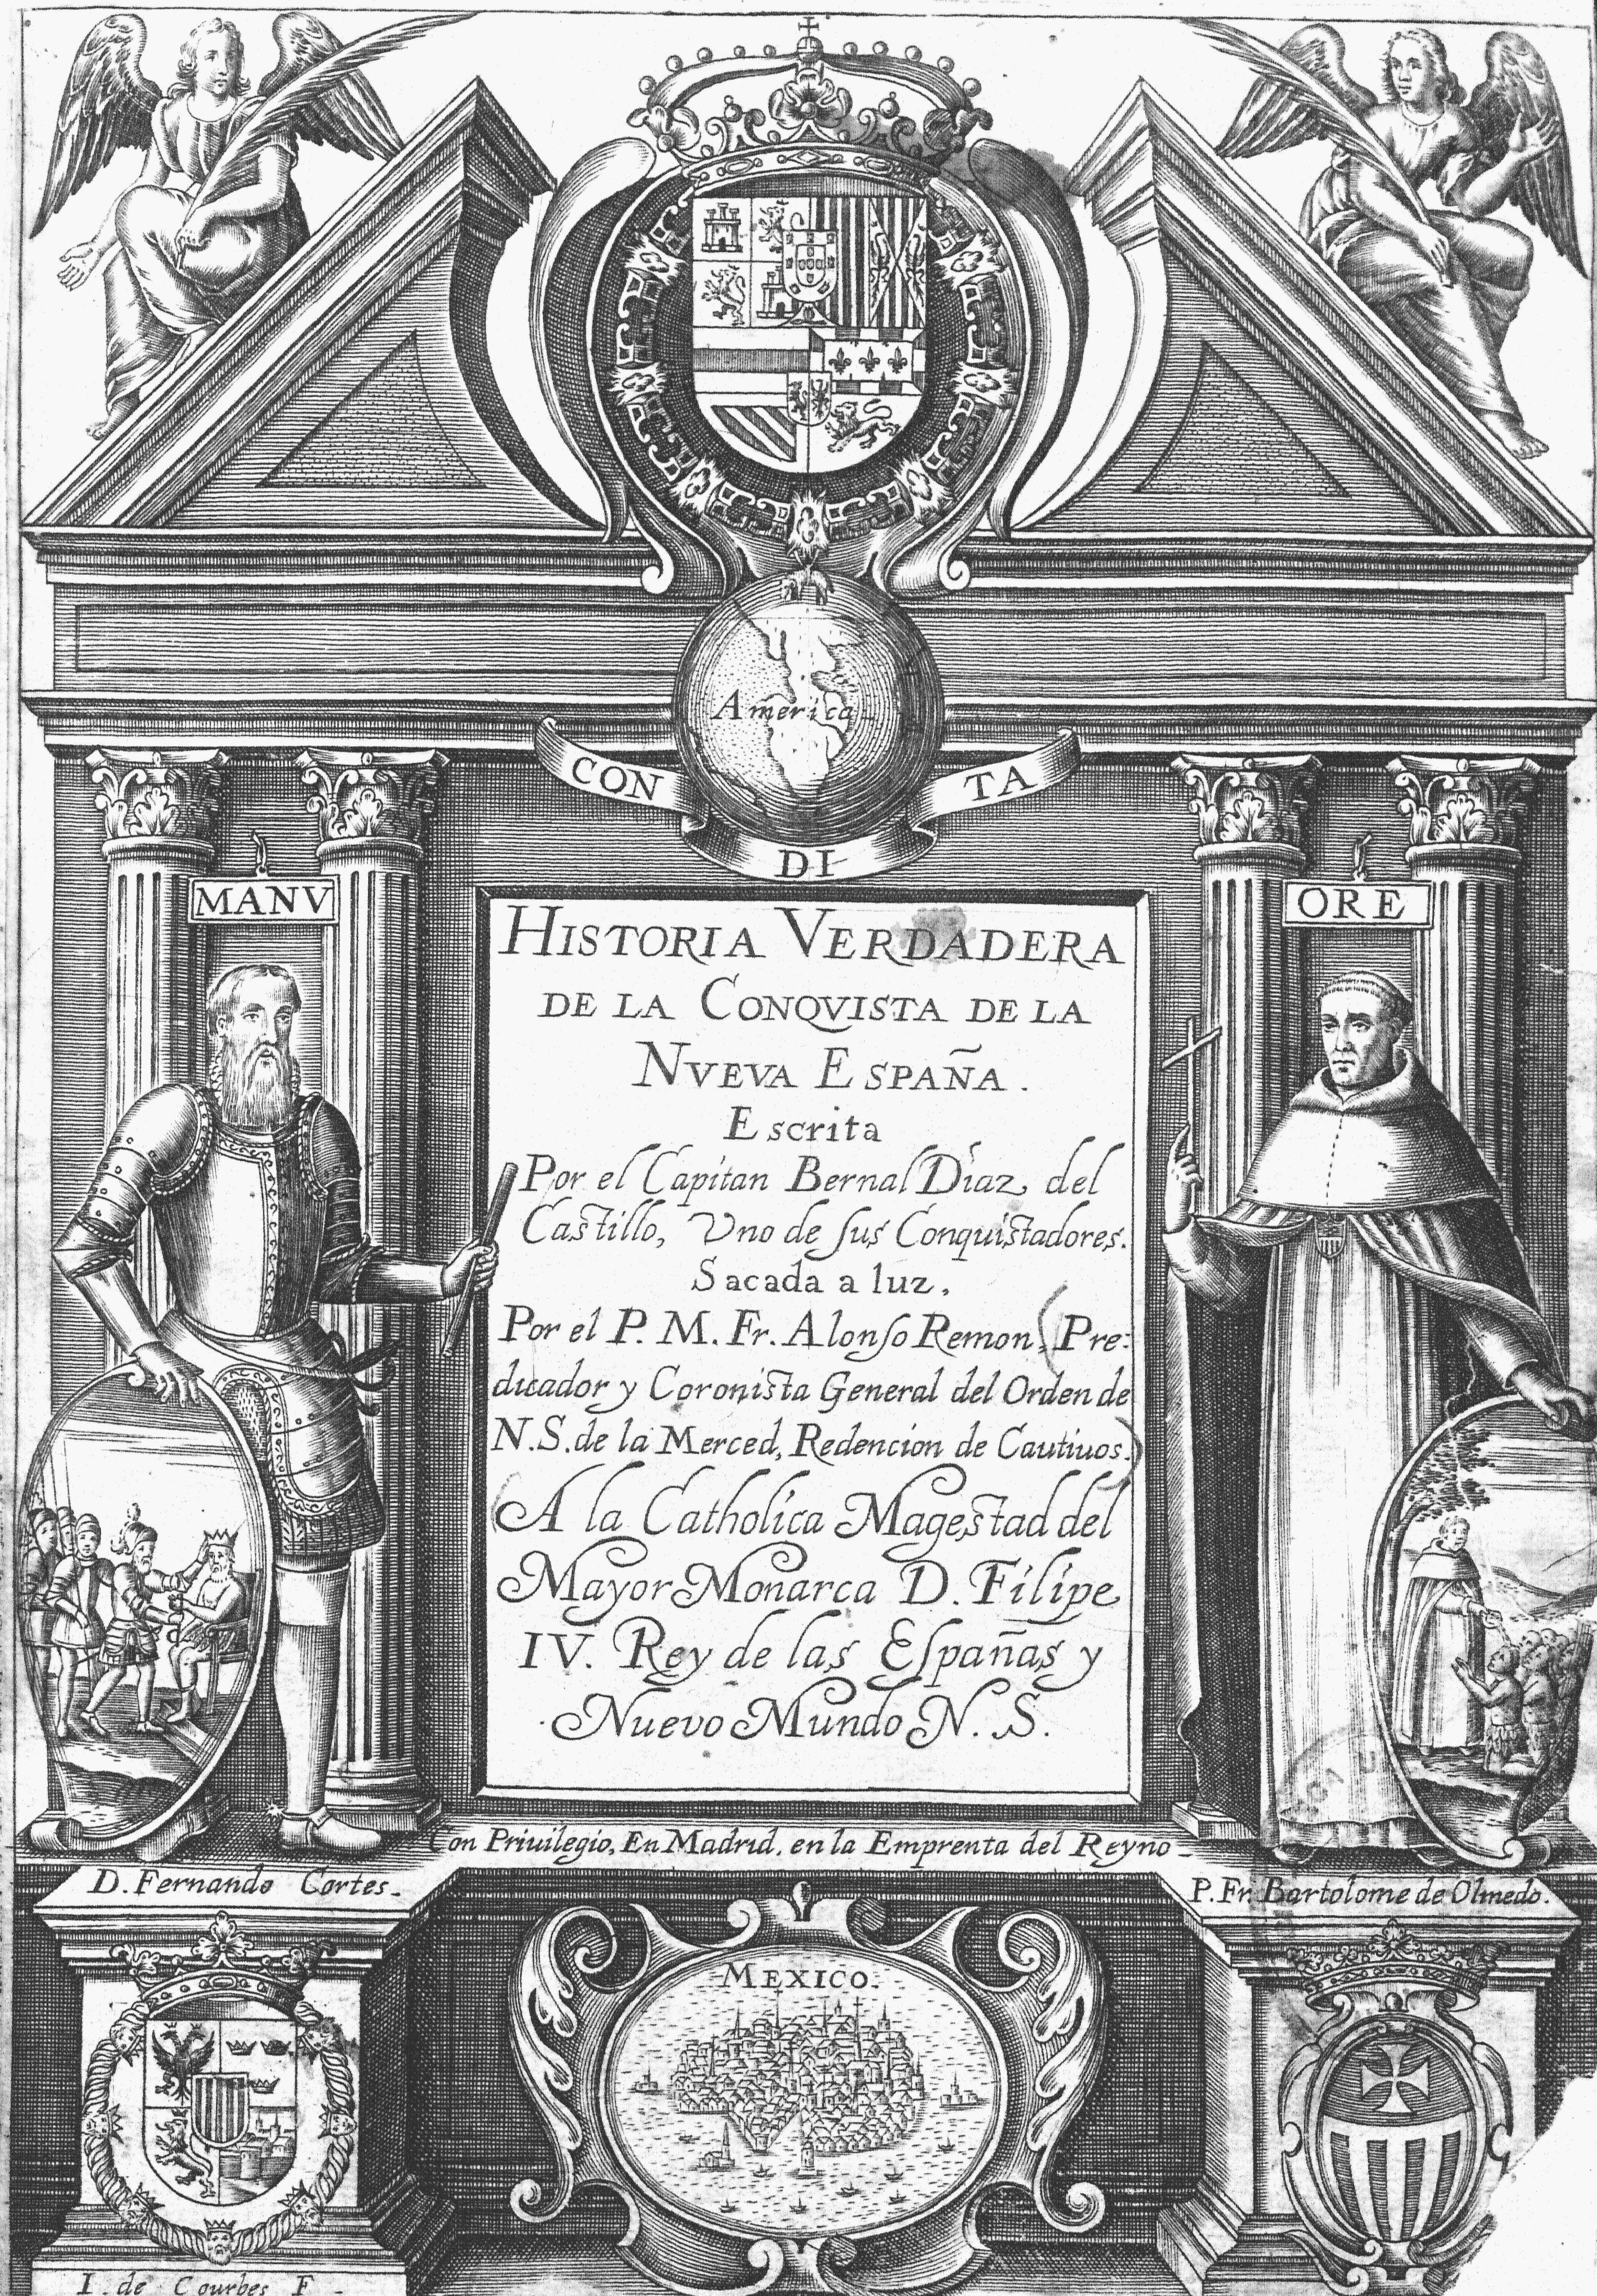 America
CON
DI
TA
MANV
ORE
HISTORIA VERDADERA
DE LA CONQVISTA DE LA
NVEVA ESPAÑA.
Escrita
Por el Capitan Bernal Díaz del
Castillo, Vno de ſus Conquistadores.
Sacada a luz,
Por el P. M. Fr. Alonſo Remon, Pre:
dicador y Coronista General del Orden de
N. S. de la Merced, Redencion de Cautiuos.
A la Catholica Magestad del
Mayor Monarca D. Filipe
IV. Rey de las Eſpañas y
Nuevo Mundo N. S.
Con Priuilegio, En Madrid, en la Emprenta del Reyno
D. Fernando Cortes.
P. Fr. Bartolome de Olmedo.
MEXICO.
I. de Courbes F